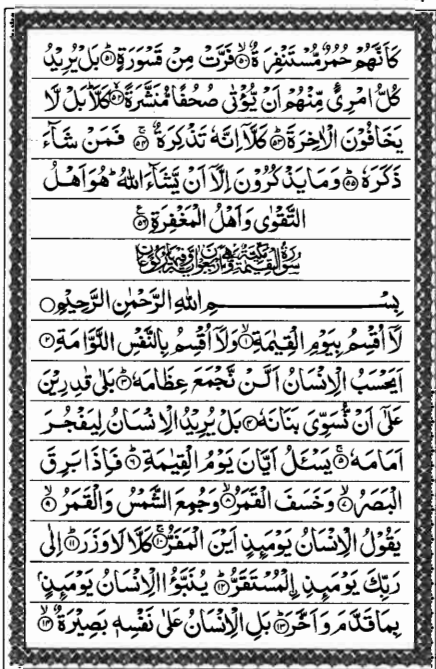 كَاَنَّهُمْ حُمُرٌ مُّسْتَنْفِرَةٌ ۙ﴿۵۰﴾ فَرَّتْ مِنْ قَسْوَرَةٍ ؕ﴿۵۱﴾ بَلْ يُرِيْدُ
كُلُّ امْرِئٍ مِّنْهُمْ اَنْ يُّؤْتٰى صُحُفًا مُّنَشَّرَةً ۙ﴿۵۲﴾ كَلَّا ؕ بَلْ لَّا
يَخَافُوْنَ الْاٰخِرَةَ ؕ﴿۵۳﴾ كَلَّاۤ اِنَّهٗ تَذْكِرَةٌ ۚ﴿۵۴﴾ فَمَنْ شَآءَ
ذَكَرَهٗ ؕ﴿۵۵﴾ وَمَا يَذْكُرُوْنَ اِلَّاۤ اَنْ يَّشَآءَ اللّٰهُ ؕ هُوَ اَهْلُ
التَّقْوٰى وَاَهْلُ الْمَغْفِرَةِ ﴿۵۶﴾
سُوْرَةُ الْقِيٰمَةِ مَكِّيَّةٌ
بِسْمِ اللّٰهِ الرَّحْمٰنِ الرَّحِيْمِ
لَاۤ اُقْسِمُ بِيَوْمِ الْقِيٰمَةِ ۙ﴿۱﴾ وَلَاۤ اُقْسِمُ بِالنَّفْسِ اللَّوَّامَةِ ؕ﴿۲﴾
اَيَحْسَبُ الْاِنْسَانُ اَلَّنْ نَّجْمَعَ عِظَامَهٗ ؕ﴿۳﴾ بَلٰى قٰدِرِيْنَ
عَلٰۤى اَنْ نُّسَوِّىَ بَنَانَهٗ ﴿۴﴾ بَلْ يُرِيْدُ الْاِنْسَانُ لِيَفْجُرَ
اَمَامَهٗ ۚ﴿۵﴾ يَسْئَلُ اَيَّانَ يَوْمُ الْقِيٰمَةِ ؕ﴿۶﴾ فَاِذَا بَرِقَ
الْبَصَرُ ۙ﴿۷﴾ وَخَسَفَ الْقَمَرُ ۙ﴿۸﴾ وَجُمِعَ الشَّمْسُ وَالْقَمَرُ ۙ﴿۹﴾
يَقُوْلُ الْاِنْسَانُ يَوْمَئِذٍ اَيْنَ الْمَفَرُّ ۚ﴿۱۰﴾ كَلَّا لَا وَزَرَ ؕ﴿۱۱﴾ اِلٰى
رَبِّكَ يَوْمَئِذِ ۨالْمُسْتَقَرُّ ؕ﴿۱۲﴾ يُنَبَّؤُا الْاِنْسَانُ يَوْمَئِذٍۭ
بِمَا قَدَّمَ وَاَخَّرَ ؕ﴿۱۳﴾ بَلِ الْاِنْسَانُ عَلٰى نَفْسِهٖ بَصِيْرَةٌ ۙ﴿۱۴﴾